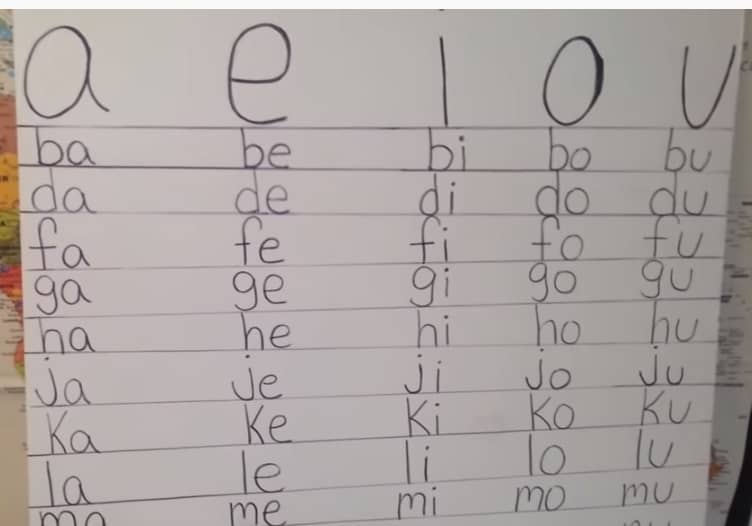 a e i o u
ba be bi bo bu
da de di do du
fa fe fi fo fu
ga ge gi go gu
ha he hi ho hu
ja je ji jo ju
Ka Ke Ki Ko Ku
la le li lo lu
ma me mi mo mu